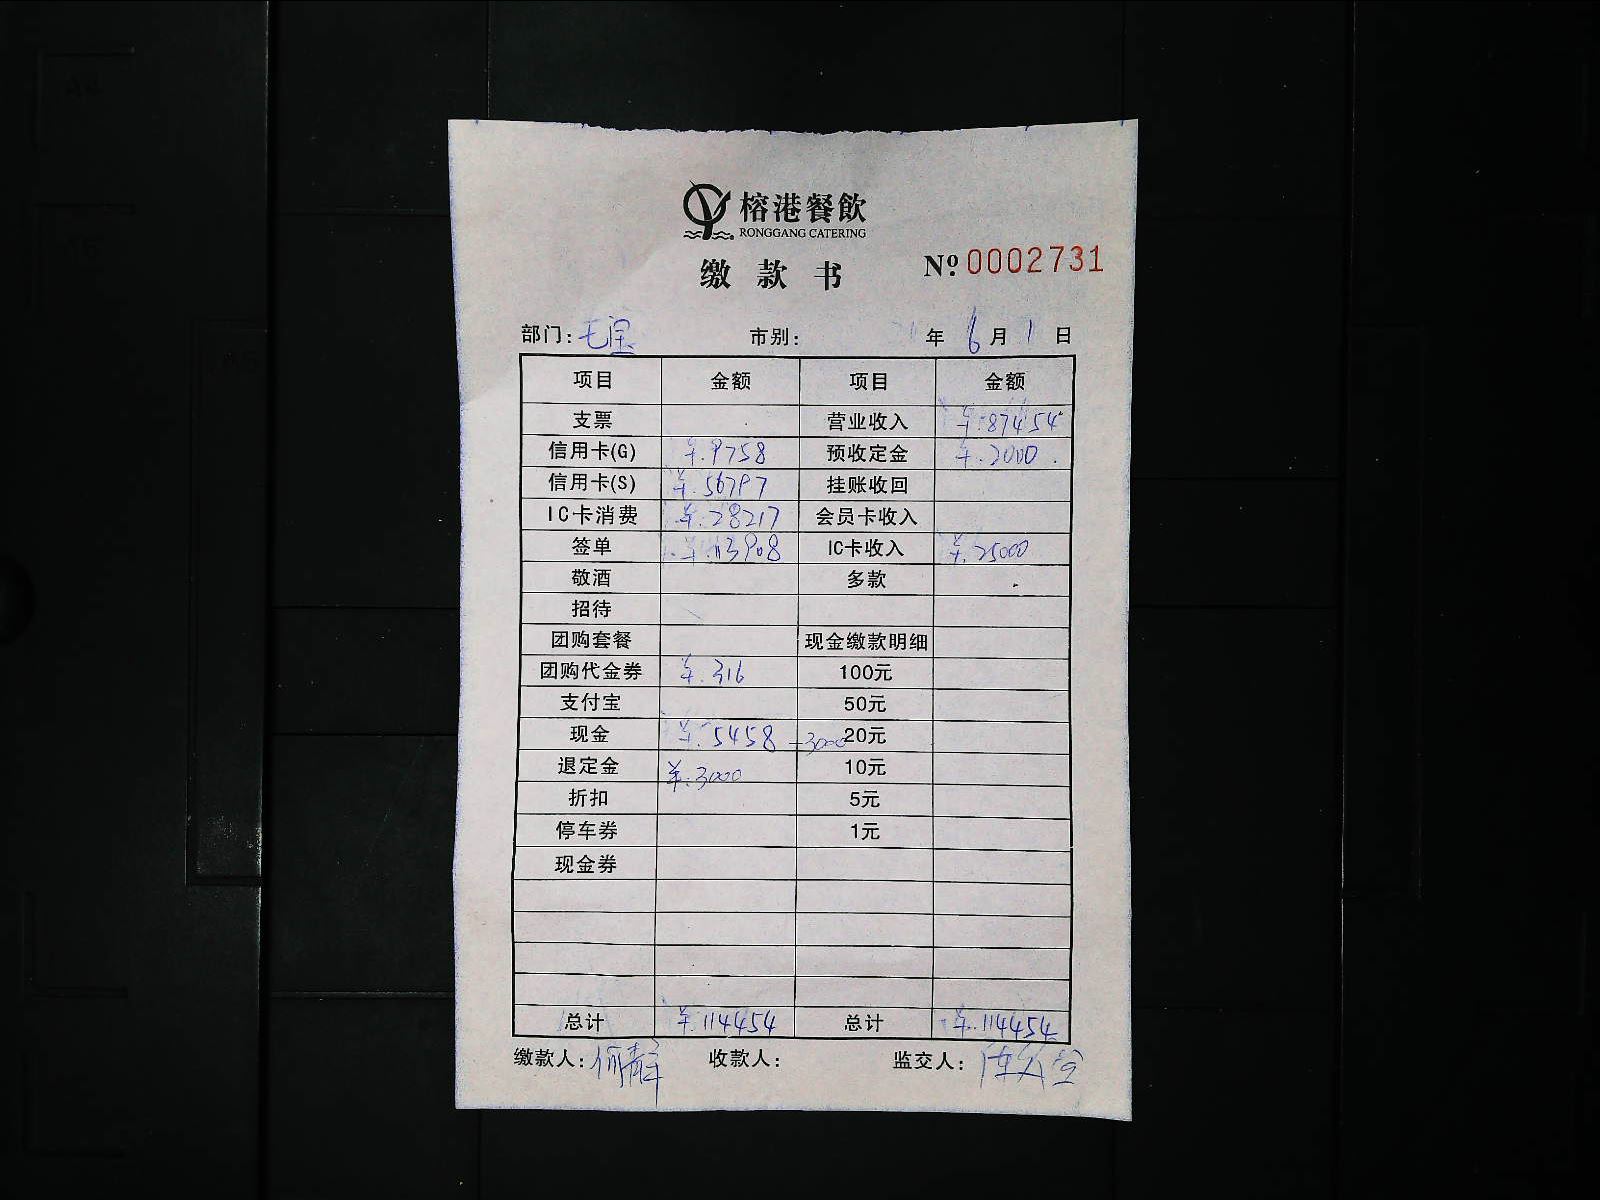 榕港餐飲
RONGGANG CATERING
缴款书 №0002731
部门: 市别: 21年6月1日
项目 金额 项目 金额
支票 营业收入 ¥.87454
信用卡(G) ¥.9758 预收定金 ¥.2000.
信用卡(S) ¥.56797 挂账收回
IC卡消费 ¥.28217 会员卡收入
签单 ¥.13908 IC卡收入 ¥.25000
敬酒 多款
招待
团购套餐 现金缴款明细
团购代金券 ¥.316 100元
支付宝 50元
现金 ¥.5458 -3000 20元
退定金 ¥.3000 10元
折扣 5元
停车券 1元
现金券
总计 ¥.114454 总计 ¥.114454
缴款人: 收款人: 监交人: